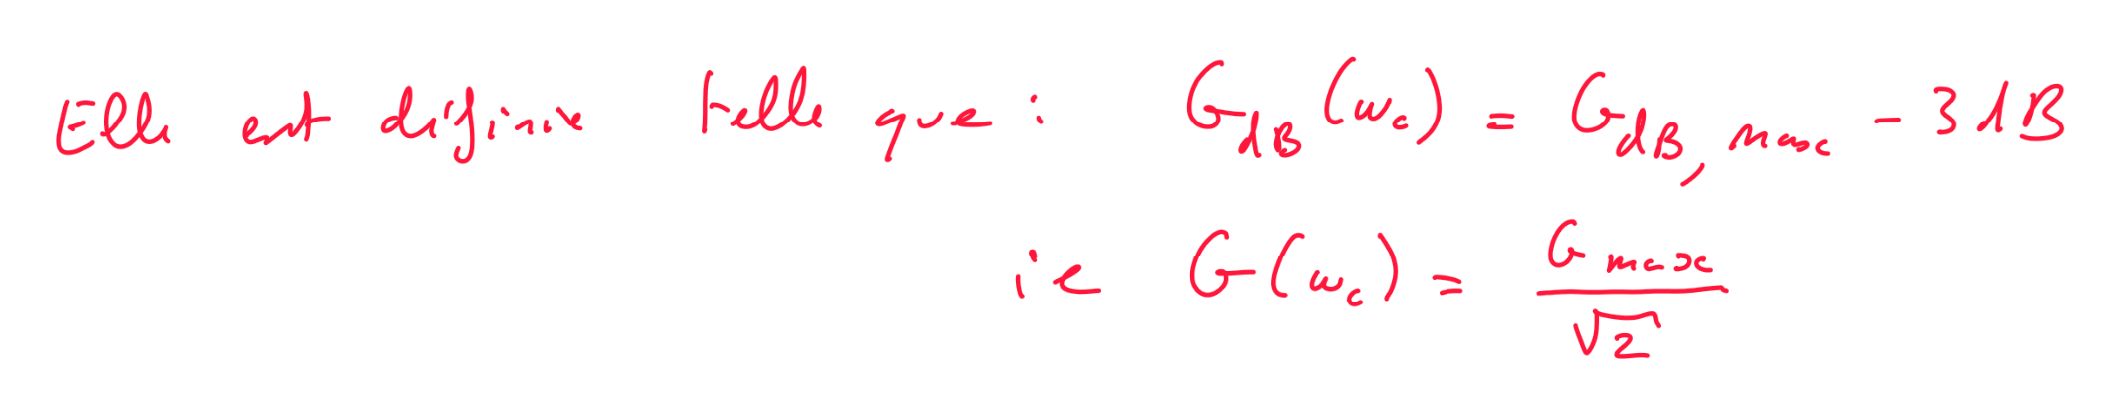 Elle est définie telle que : G_dB(ω_c) = G_dB,max - 3dB
ie G(ω_c) = G_max/√2